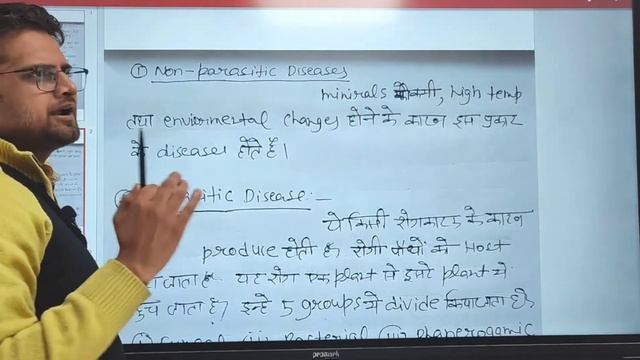 ① Non-parasitic Diseases
minirals की कमी, high temp
तथा envirmental changes होने के कारण इस प्रकार
के diseases होते हैं।
sitic Disease:-
ये किसी रोगकारक के कारण
produce होती है, रोगी पौधों को Host
जाता है. यह रोग एक plant से दूसरे plant में
जाता है, इन्हे 5 groups में divide किया जाता है,
(ii) Bacterial (iii) phanerogamic
promark